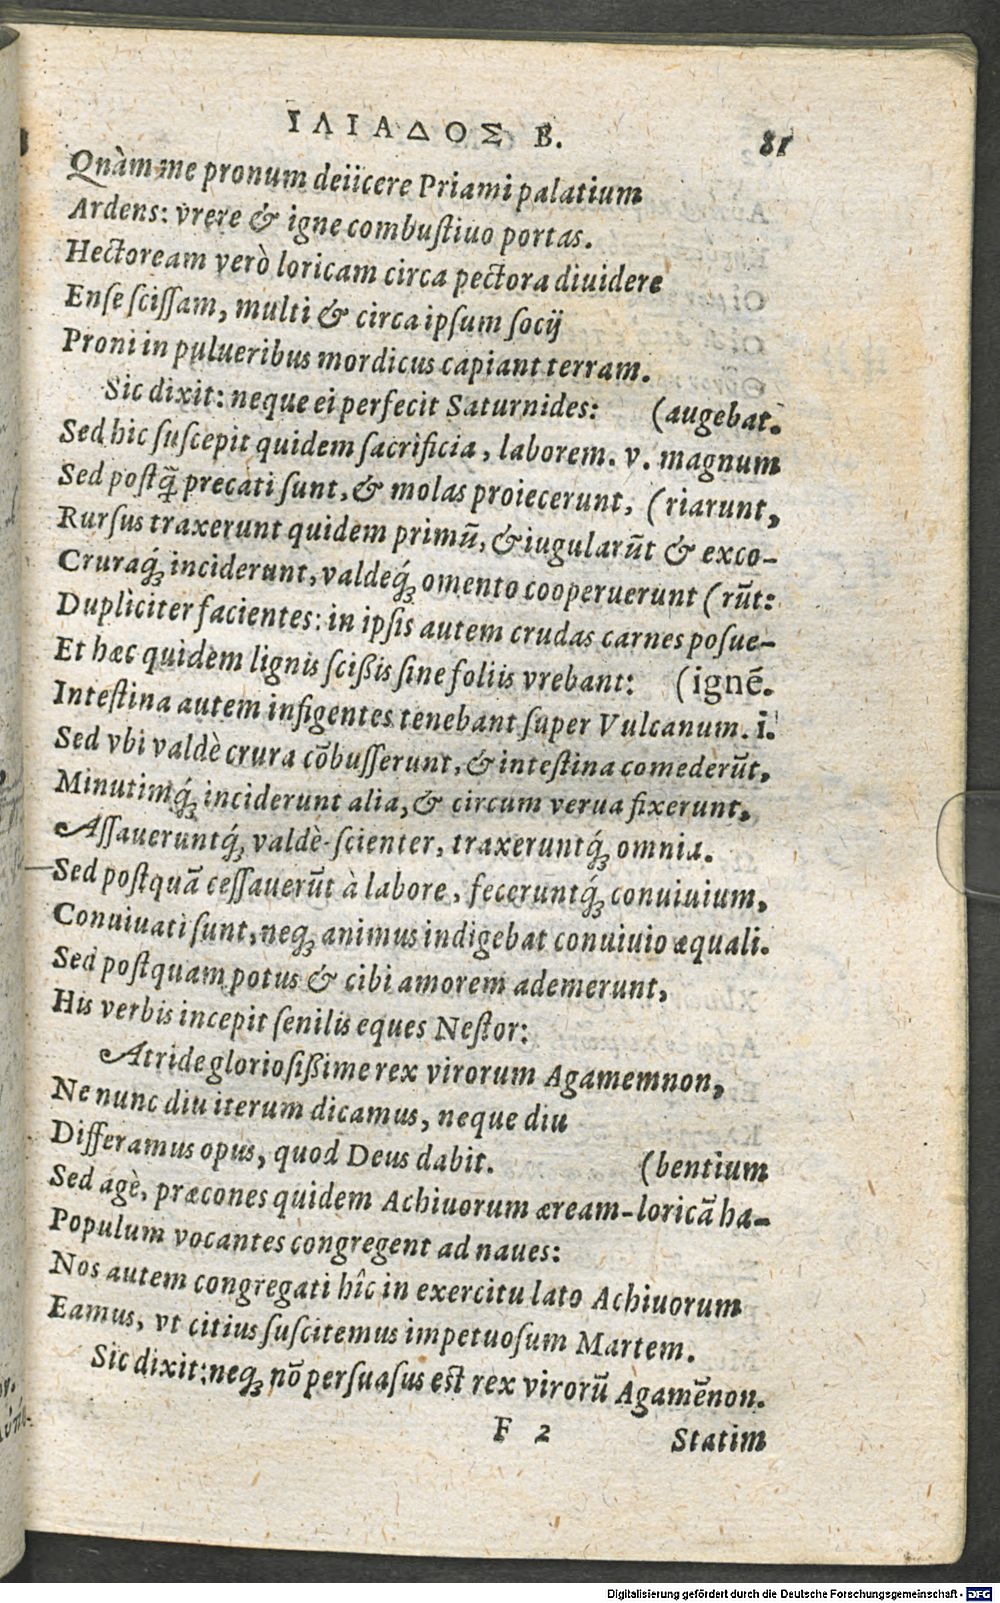 ΙΛΙΑΔΟΣ Β. 81
Quàm me pronum deiicere Priami palatium
Ardens: vrere & igne combustiuo portas.
Hectoream verò loricam circa pectora diuidere
Ense scissam, multi & circa ipsum socij
Proni in pulueribus mordicus capiant terram.
Sic dixit: neque ei perfecit Saturnides: (augebat.
Sed hic suscepit quidem sacrificia, laborem. v. magnum
Sed postq̃ precati sunt, & molas proiecerunt, (riarunt,
Rursus traxerunt quidem primũ, & iugularũt & exco-
Cruraq́; inciderunt, valdeq́; omento cooperuerunt (rũt:
Dupliciter facientes: in ipsis autem crudas carnes posue-
Et hæc quidem lignis scißis sine foliis vrebant: (ignẽ.
Intestina autem infigentes tenebant super Vulcanum. i.
Sed vbi valdè crura cõbusserunt, & intestina comederũt,
Minutimq́; inciderunt alia, & circum verua fixerunt,
Assaueruntq́; valdè-scienter, traxeruntq́; omnia.
Sed postquã cessauerũt à labore, feceruntq́; conuiuium,
Conuiuati sunt, neq; animus indigebat conuiuio æquali.
Sed postquam potus & cibi amorem ademerunt,
His verbis incepit senilis eques Nestor:
Atride gloriosißime rex virorum Agamemnon,
Ne nunc diu iterum dicamus, neque diu
Differamus opus, quod Deus dabit. (bentium
Sed agè, præcones quidem Achiuorum æream-loricã ha-
Populum vocantes congregent ad naues:
Nos autem congregati hîc in exercitu lato Achiuorum
Eamus, vt citius suscitemus impetuosum Martem.
Sic dixit: neq; nõ persuasus est rex virorũ Agamẽnon.
F 2 Statim
Digitalisierung gefördert durch die Deutsche Forschungsgemeinschaft - DFG